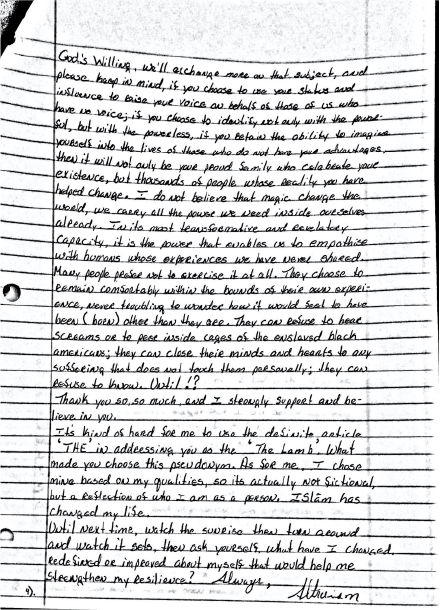 God's Willing, we'll exchange more on that subject, and
please keep in mind, if you choose to use your status and
influence to raise your voice on behalf of those of us who
have no voice; if you choose to identify not only with the power-
ful, but with the powerless, if you retain the ability to imagine
yourself into the lives of those who do not have your advantages,
then it will not only be your proud family who celebrate your
existence, but thousands of people whose reality you have
helped change. I do not believe that magic change the
world, we carry all the power we need inside ourselves
already. In its most transformative and revelatory
capacity, it is the power that enables us to empathise
with humans whose experiences we have never shared.
Many people prefer not to exercise it at all. They choose to
remain comfortably within the bounds of their own experi-
ence, never troubling to wonder how it would feel to have
been (born) other than they are. They can refuse to hear
screams or to peer inside cages of the enslaved black
americans; they can close their minds and hearts to any
suffering that does not touch them personally; they can
refuse to know. Until!?
Thank you so, so much, and I strongly support and be-
lieve in you.
Its kind of hard for me to use the definite article
'THE' in addressing you as the 'The Lamb'. What
made you choose this pseudonym. As for me, I chose
mine based on my qualities, so its actually not fictional,
but a reflection of who I am as a person. ISlâm has
changed my life.
Until next time, watch the sunrise then turn around
and watch it sets, then ask yourself, what have I changed,
redefined or improved about myself that would help me
strengthen my resilience? Always,
4).